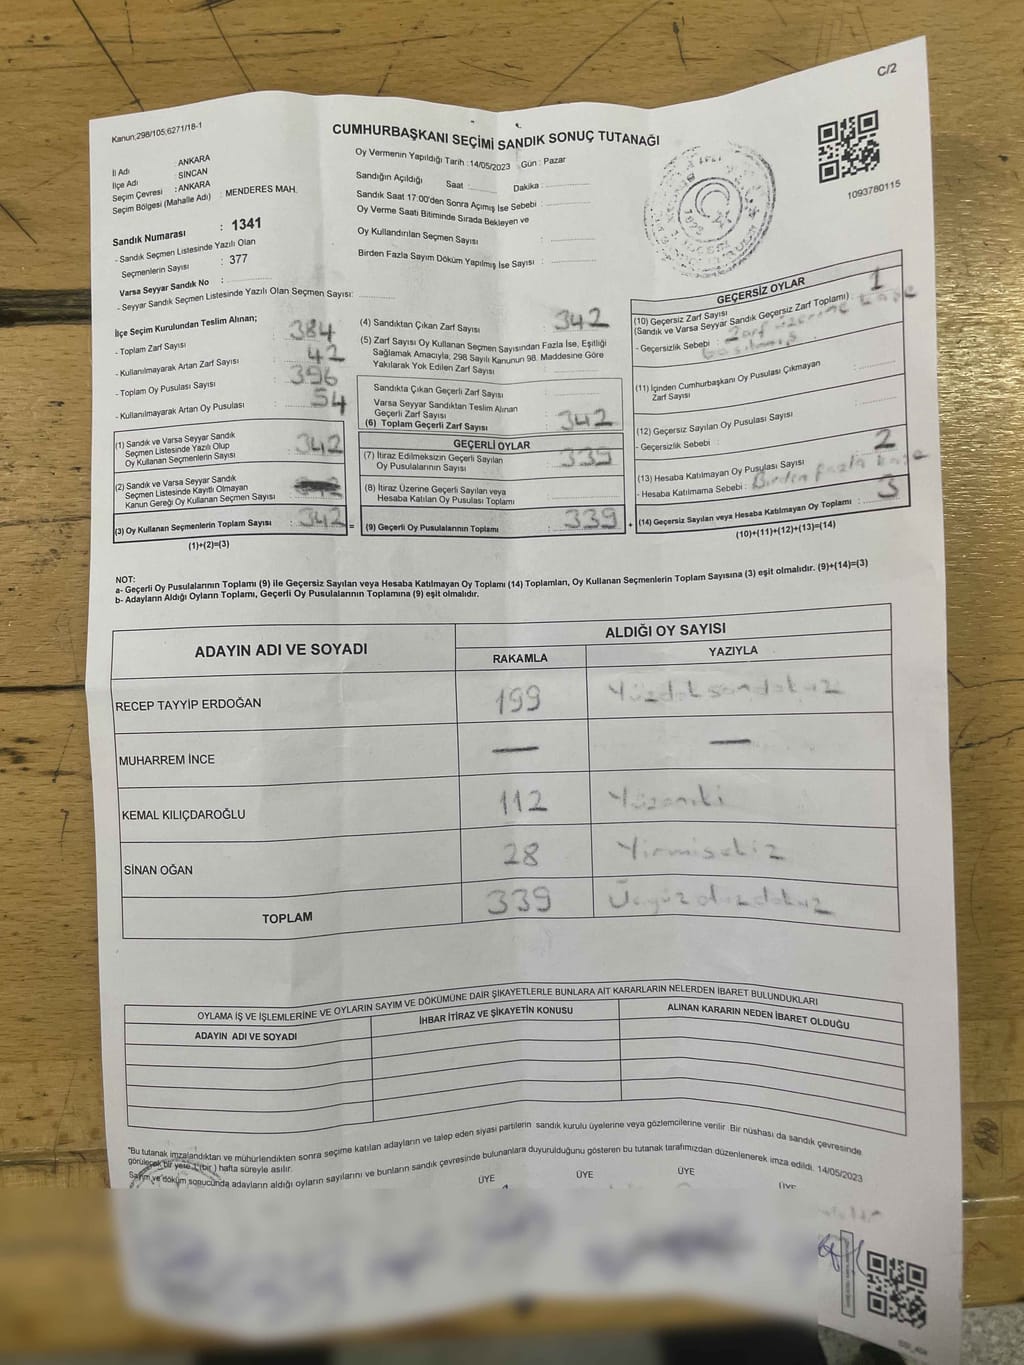 C/2
Kanun;298/105;6271/18-1
CUMHURBAŞKANI SEÇİMİ SANDIK SONUÇ TUTANAĞI
1093780115
İl Adı : ANKARA
İlçe Adı : SİNCAN
Seçim Çevresi : ANKARA
Seçim Bölgesi (Mahalle Adı) : MENDERES MAH.
Sandık Numarası : 1341
- Sandık Seçmen Listesinde Yazılı Olan
Seçmenlerin Sayısı : 377
Varsa Seyyar Sandık No :
- Seyyar Sandık Seçmen Listesinde Yazılı Olan Seçmen Sayısı:
Oy Vermenin Yapıldığı Tarih :14/05/2023 Gün : Pazar
Sandığın Açıldığı Saat : Dakika :
Sandık Saat 17:00'den Sonra Açımış İse Sebebi :
Oy Verme Saati Bitiminde Sırada Bekleyen ve
Oy Kullandırılan Seçmen Sayısı :
Birden Fazla Sayım Döküm Yapılmış İse Sayısı :
İlçe Seçim Kurulundan Teslim Alınan;
- Toplam Zarf Sayısı : 384
- Kullanılmayarak Artan Zarf Sayısı : 42
- Toplam Oy Pusulası Sayısı : 396
- Kullanılmayarak Artan Oy Pusulası : 54
(1) Sandık ve Varsa Seyyar Sandık
Seçmen Listesinde Yazılı Olup
Oy Kullanan Seçmenlerin Sayısı : 342
(2) Sandık ve Varsa Seyyar Sandık
Seçmen Listesinde Kayıtlı Olmayan
Kanun Gereği Oy Kullanan Seçmen Sayısı :
(3) Oy Kullanan Seçmenlerin Toplam Sayısı : 342 =
(1)+(2)=(3)
(4) Sandıktan Çıkan Zarf Sayısı : 342
(5) Zarf Sayısı Oy Kullanan Seçmen Sayısından Fazla İse, Eşitliği
Sağlamak Amacıyla, 298 Sayılı Kanunun 98. Maddesine Göre
Yakılarak Yok Edilen Zarf Sayısı :
Sandıkta Çıkan Geçerli Zarf Sayısı :
Varsa Seyyar Sandıktan Teslim Alınan
Geçerli Zarf Sayısı :
(6) Toplam Geçerli Zarf Sayısı : 342
GEÇERLİ OYLAR
(7) İtiraz Edilmeksizin Geçerli Sayılan
Oy Pusulalarının Sayısı : 339
(8) İtiraz Üzerine Geçerli Sayılan veya
Hesaba Katılan Oy Pusulası Toplamı :
(9) Geçerli Oy Pusulalarının Toplamı : 339 +
GEÇERSİZ OYLAR
(10) Geçersiz Zarf Sayısı
(Sandık ve Varsa Seyyar Sandık Geçersiz Zarf Toplamı) : 1
- Geçersizlik Sebebi : Zarf üzerine kaşe
basılmış
(11) İçinden Cumhurbaşkanı Oy Pusulası Çıkmayan
Zarf Sayısı :
(12) Geçersiz Sayılan Oy Pusulası Sayısı :
- Geçersizlik Sebebi :
(13) Hesaba Katılmayan Oy Pusulası Sayısı : 2
- Hesaba Katılmama Sebebi : Birden fazla kaşe
(14) Geçersiz Sayılan veya Hesaba Katılmayan Oy Toplamı : 3
(10)+(11)+(12)+(13)=(14)
NOT:
a- Geçerli Oy Pusulalarının Toplamı (9) ile Geçersiz Sayılan veya Hesaba Katılmayan Oy Toplamı (14) Toplamları, Oy Kullanan Seçmenlerin Toplam Sayısına (3) eşit olmalıdır. (9)+(14)=(3)
b- Adayların Aldığı Oyların Toplamı, Geçerli Oy Pusulalarının Toplamına (9) eşit olmalıdır.
ADAYIN ADI VE SOYADI
ALDIĞI OY SAYISI
RAKAMLA YAZIYLA
RECEP TAYYİP ERDOĞAN 199 Yüzdoksandokuz
MUHARREM İNCE — —
KEMAL KILIÇDAROĞLU 112 Yüzoniki
SİNAN OĞAN 28 Yirmisekiz
TOPLAM 339 Üçyüzotuzdokuz
OYLAMA İŞ VE İŞLEMLERİNE VE OYLARIN SAYIM VE DÖKÜMÜNE DAİR ŞİKAYETLERLE BUNLARA AİT KARARLARIN NELERDEN İBARET BULUNDUKLARI
ADAYIN ADI VE SOYADI İHBAR İTİRAZ VE ŞİKAYETİN KONUSU ALINAN KARARIN NEDEN İBARET OLDUĞU
*Bu tutanak imzalandıktan ve mühürlendikten sonra seçime katılan adayların ve talep eden siyasi partilerin sandık kurulu üyelerine veya gözlemcilerine verilir. Bir nüshası da sandık çevresinde
görülecek bir yere 1 (bir ) hafta süreyle asılır.
Sayım ve döküm sonucunda adayların aldığı oyların sayılarını ve bunların sandık çevresinde bulunanlara duyurulduğunu gösteren bu tutanak tarafımızdan düzenlenerek imza edildi. 14/05/2023
ÜYE ÜYE ÜYE ÜYE